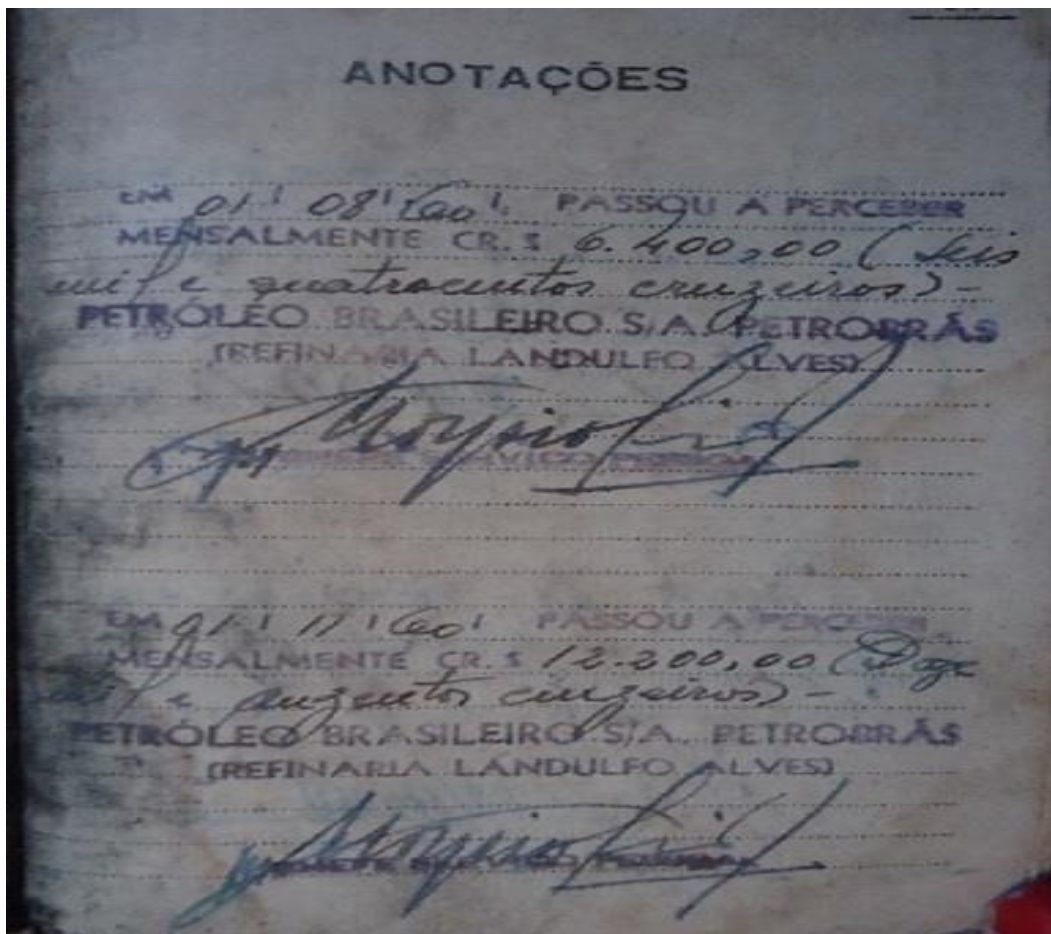 ANOTAÇÕES
EM 01 / 08 / 60 / PASSOU A PERCEBER
MENSALMENTE CR. $ 6.400,00 ( Seis
mil e quatrocentos cruzeiros) -
PETRÓLEO BRASILEIRO S/A. PETROBRÁS
(REFINARIA LANDULFO ALVES)
EM 01 / 11 / 60 / PASSOU A PERCEBER
MENSALMENTE CR. $ 12.200,00 ( Doze
mil e duzentos cruzeiros) -
PETRÓLEO BRASILEIRO S/A. PETROBRÁS
(REFINARIA LANDULFO ALVES)